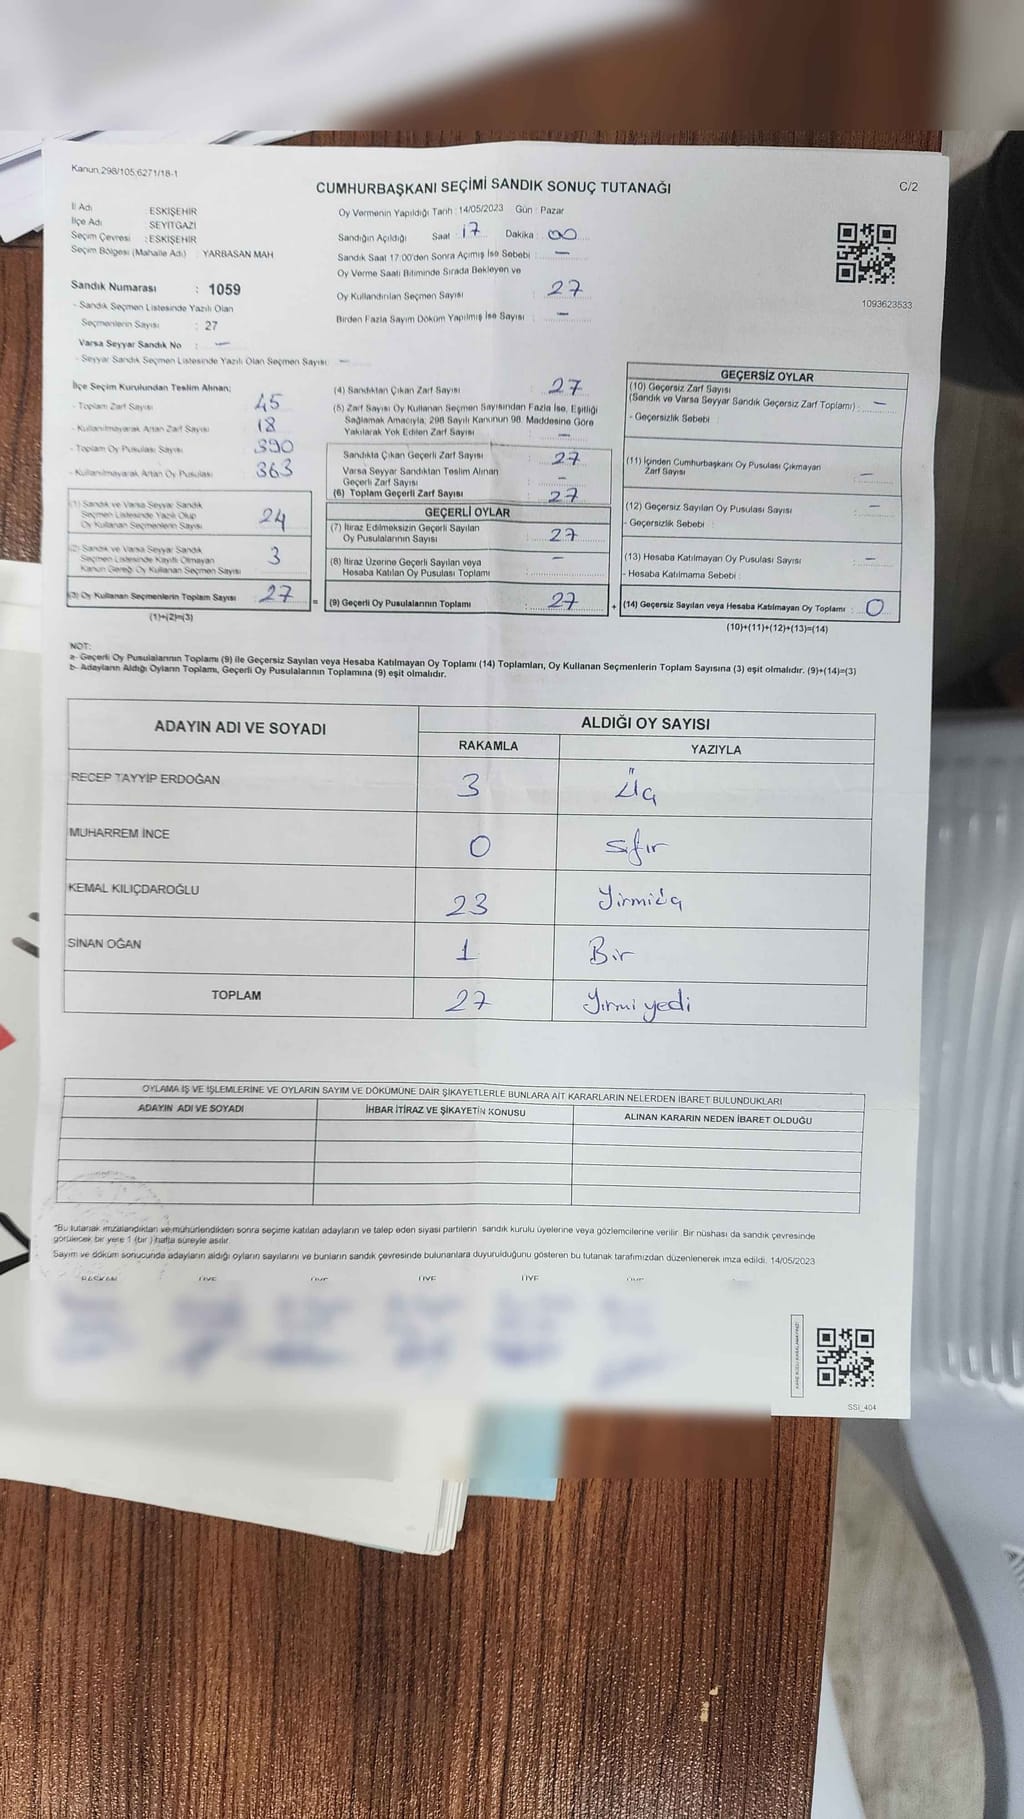 Kanun,298/105,6271/18-1
CUMHURBAŞKANI SEÇİMİ SANDIK SONUÇ TUTANAĞI
C/2
İl Adı ESKİŞEHİR
İlçe Adı SEYİTGAZİ
Seçim Çevresi : ESKİŞEHİR
Seçim Bölgesi (Mahalle Adı) : YARBASAN MAH
Oy Vermenin Yapıldığı Tarih : 14/05/2023 Gün : Pazar
Sandığın Açıldığı Saat : 17 Dakika : 00
Sandık Saat 17:00'den Sonra Açımış İse Sebebi : —
Oy Verme Saati Bitiminde Sırada Bekleyen ve
Oy Kullandırılan Seçmen Sayısı : 27
Birden Fazla Sayım Döküm Yapılmış İse Sayısı : —
1093623533
Sandık Numarası : 1059
- Sandık Seçmen Listesinde Yazılı Olan
Seçmenlerin Sayısı : 27
Varsa Seyyar Sandık No : —
- Seyyar Sandık Seçmen Listesinde Yazılı Olan Seçmen Sayısı : —
İlçe Seçim Kurulundan Teslim Alınan;
- Toplam Zarf Sayısı 45
- Kullanılmayarak Artan Zarf Sayısı 18
- Toplam Oy Pusulası Sayısı 390
- Kullanılmayarak Artan Oy Pusulası 363
(1) Sandık ve Varsa Seyyar Sandık
Seçmen Listesinde Yazılı Olup
Oy Kullanan Seçmenlerin Sayısı 24
(2) Sandık ve Varsa Seyyar Sandık
Seçmen Listesinde Kayıtlı Olmayan
Kanun Gereği Oy Kullanan Seçmen Sayısı 3
(3) Oy Kullanan Seçmenlerin Toplam Sayısı 27
(1)+(2)=(3)
(4) Sandıktan Çıkan Zarf Sayısı : 27
(5) Zarf Sayısı Oy Kullanan Seçmen Sayısından Fazla İse, Eşitliği
Sağlamak Amacıyla, 298 Sayılı Kanunun 98. Maddesine Göre
Yakılarak Yok Edilen Zarf Sayısı : —
Sandıkta Çıkan Geçerli Zarf Sayısı : 27
Varsa Seyyar Sandıktan Teslim Alınan
Geçerli Zarf Sayısı : —
(6) Toplam Geçerli Zarf Sayısı : 27
GEÇERLİ OYLAR
(7) İtiraz Edilmeksizin Geçerli Sayılan
Oy Pusulalarının Sayısı : 27
(8) İtiraz Üzerine Geçerli Sayılan veya
Hesaba Katılan Oy Pusulası Toplamı : —
= (9) Geçerli Oy Pusulalarının Toplamı : 27 +
GEÇERSİZ OYLAR
(10) Geçersiz Zarf Sayısı
(Sandık ve Varsa Seyyar Sandık Geçersiz Zarf Toplamı) : —
- Geçersizlik Sebebi :
(11) İçinden Cumhurbaşkanı Oy Pusulası Çıkmayan
Zarf Sayısı : —
(12) Geçersiz Sayılan Oy Pusulası Sayısı : —
- Geçersizlik Sebebi :
(13) Hesaba Katılmayan Oy Pusulası Sayısı : —
- Hesaba Katılmama Sebebi :
(14) Geçersiz Sayılan veya Hesaba Katılmayan Oy Toplamı : 0
(10)+(11)+(12)+(13)=(14)
NOT:
a- Geçerli Oy Pusulalarının Toplamı (9) ile Geçersiz Sayılan veya Hesaba Katılmayan Oy Toplamı (14) Toplamları, Oy Kullanan Seçmenlerin Toplam Sayısına (3) eşit olmalıdır. (9)+(14)=(3)
b- Adayların Aldığı Oyların Toplamı, Geçerli Oy Pusulalarının Toplamına (9) eşit olmalıdır.
ADAYIN ADI VE SOYADI ALDIĞI OY SAYISI
RAKAMLA YAZIYLA
RECEP TAYYİP ERDOĞAN 3 Üç
MUHARREM İNCE 0 sıfır
KEMAL KILIÇDAROĞLU 23 Yirmiüç
SİNAN OĞAN 1 Bir
TOPLAM 27 Yirmi yedi
OYLAMA İŞ VE İŞLEMLERİNE VE OYLARIN SAYIM VE DÖKÜMÜNE DAİR ŞİKAYETLERLE BUNLARA AİT KARARLARIN NELERDEN İBARET BULUNDUKLARI
ADAYIN ADI VE SOYADI İHBAR İTİRAZ VE ŞİKAYETİN KONUSU ALINAN KARARIN NEDEN İBARET OLDUĞU
*Bu tutanak imzalandıktan ve mühürlendikten sonra seçime katılan adayların ve talep eden siyasi partilerin sandık kurulu üyelerine veya gözlemcilerine verilir. Bir nüshası da sandık çevresinde
görülecek bir yere 1 (bir ) hafta süreyle asılır.
Sayım ve döküm sonucunda adayların aldığı oyların sayılarını ve bunların sandık çevresinde bulunanlara duyurulduğunu gösteren bu tutanak tarafımızdan düzenlenerek imza edildi. 14/05/2023
BAŞKAN ÜYE ÜYE ÜYE ÜYE ÜYE
SSI_404